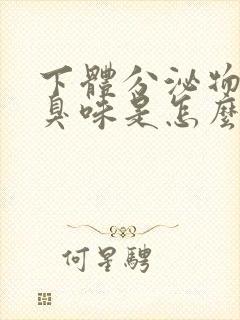 下體分泌物
臭味是怎麼
何星騁